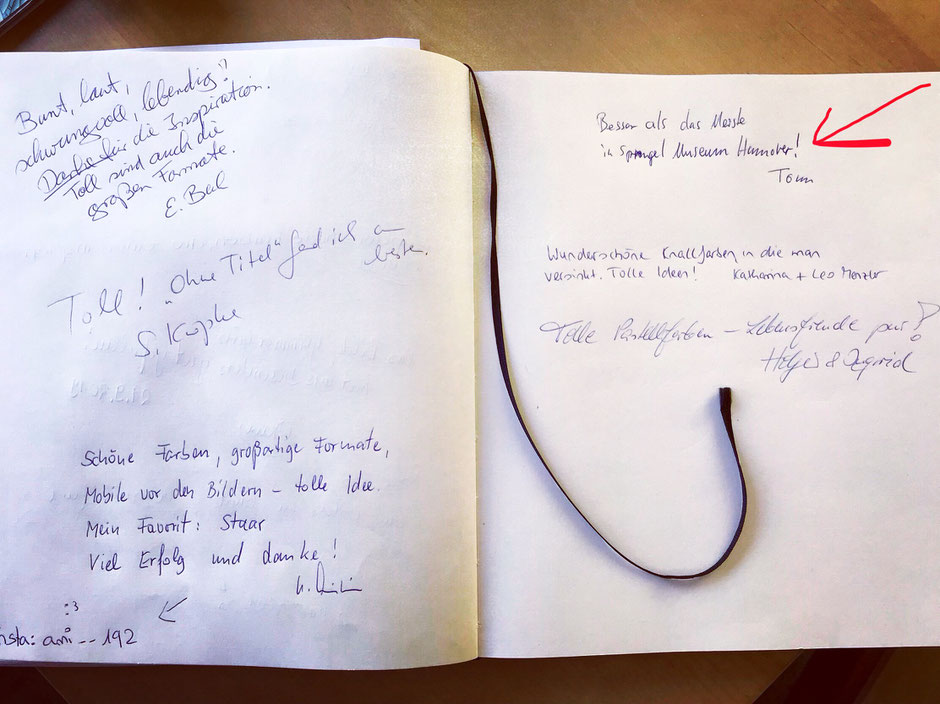 Bunt, laut,
schwungvoll, lebendig!!
Danke für die Inspiration.
Toll sind auch die
großen Formate.
E. Beul
Toll! „Ohne Titel“ fand ich am
besten.
S. Kopke
Schöne Farben, großartige Formate,
Mobile vor den Bildern – tolle Idee.
Mein Favorit: Staar
Viel Erfolg und danke!
:3
insta: ami__192
Besser als das Meiste
in Sprengel Museum Hannover!
Tom
Wunderschöne Knallfarben in die man
versinkt. Tolle Ideen! Katharina + Leo Menzler
Tolle Pastellfarben – Lebensfreude pur!
Holger & Ingrid